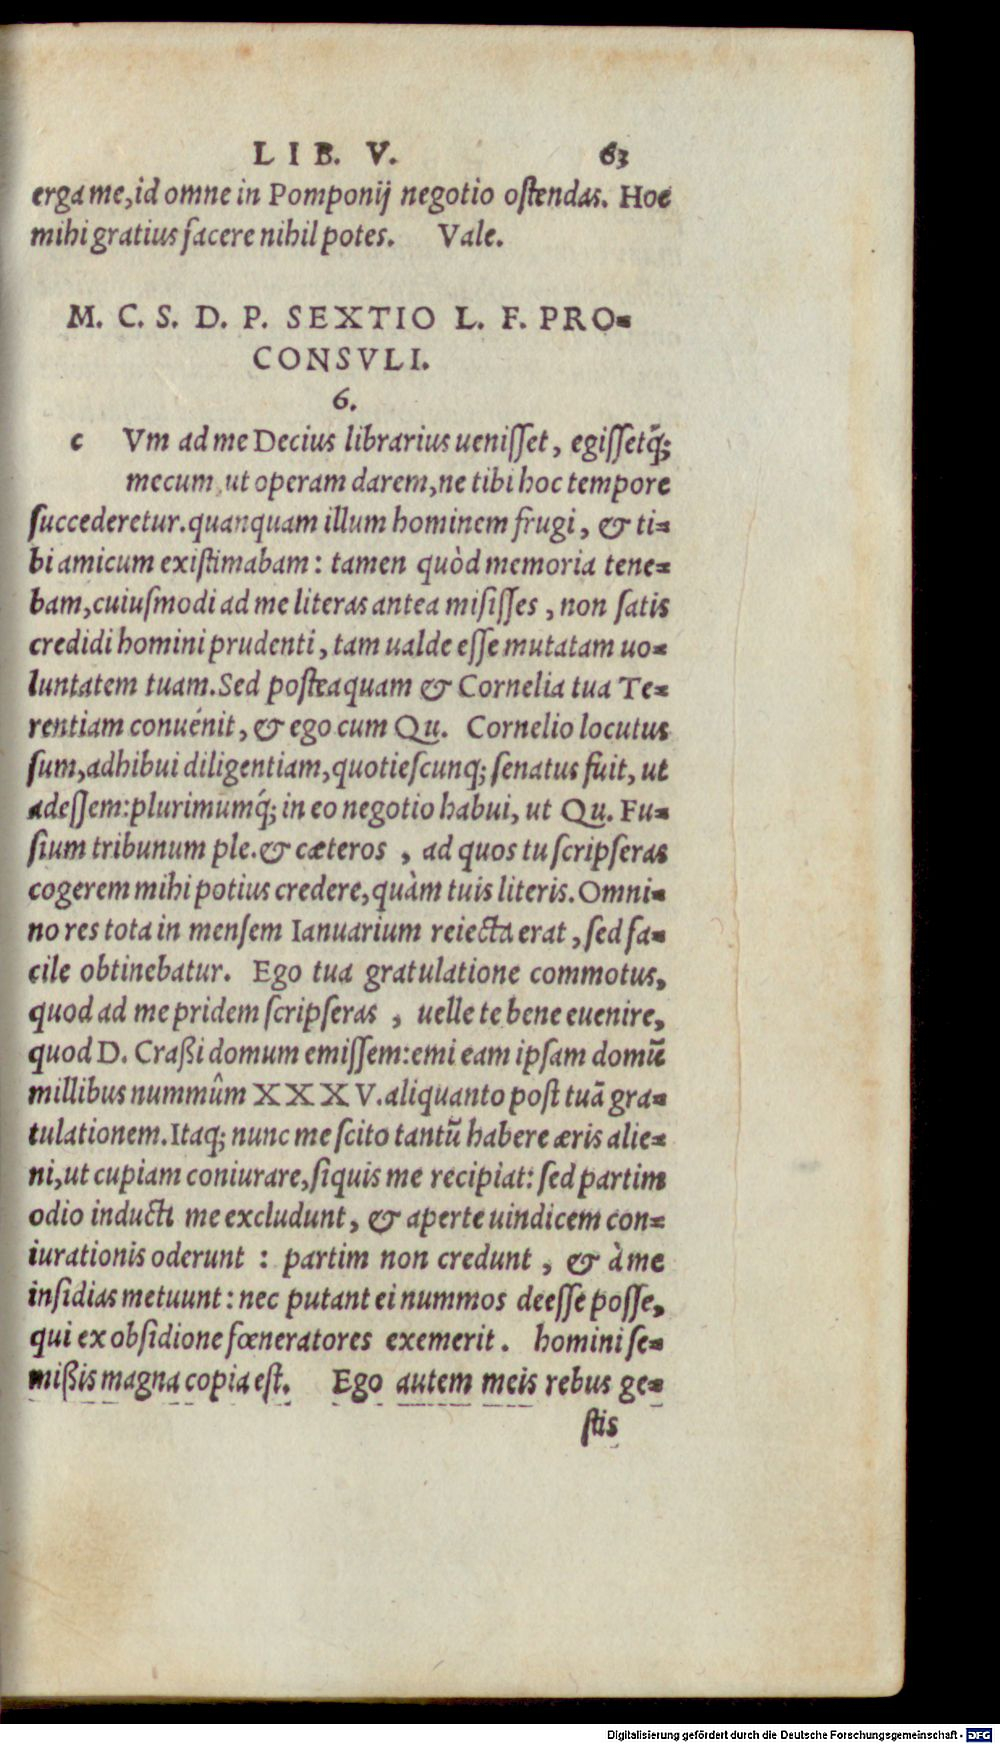 LIB. V. 63
erga me, id omne in Pomponij negotio oſtendas. Hoc
mihi gratius facere nihil potes. Vale.
M. C. S. D. P. SEXTIO L. F. PRO-
CONSVLI.
6.
c Vm ad me Decius librarius ueniſſet, egiſſetq́;
mecum, ut operam darem, ne tibi hoc tempore
ſuccederetur. quanquam illum hominem frugi, & ti-
bi amicum exiſtimabam: tamen quòd memoria tene-
bam, cuiuſmodi ad me literas antea miſiſſes, non ſatis
credidi homini prudenti, tam ualde eſſe mutatam uo-
luntatem tuam. Sed poſteaquam & Cornelia tua Te-
rentiam conuénit, & ego cum Qu. Cornelio locutus
ſum, adhibui diligentiam, quotieſcunq; ſenatus fuit, ut
adeſſem: plurimumq́; in eo negotio habui, ut Qu. Fu-
ſium tribunum ple. & cæteros, ad quos tu ſcripſeras
cogerem mihi potius credere, quàm tuis literis. Omni-
no res tota in menſem Ianuarium reiecta erat, ſed fa-
cile obtinebatur. Ego tua gratulatione commotus,
quod ad me pridem ſcripſeras, uelle te bene euenire,
quod D. Craßi domum emiſſem: emi eam ipſam domū
millibus nummûm XXXV. aliquanto poſt tuā gra-
tulationem. Itaq; nunc me ſcito tantū habere æris alie-
ni, ut cupiam coniurare, ſiquis me recipiat: ſed partim
odio inducti me excludunt, & aperte uindicem con-
iurationis oderunt: partim non credunt, & à me
inſidias metuunt: nec putant ei nummos deeſſe poſſe,
qui ex obſidione fœneratores exemerit. homini ſe-
mißis magna copia eſt. Ego autem meis rebus ge-
ſtis
Digitalisierung gefördert durch die Deutsche Forschungsgemeinschaft - DFG